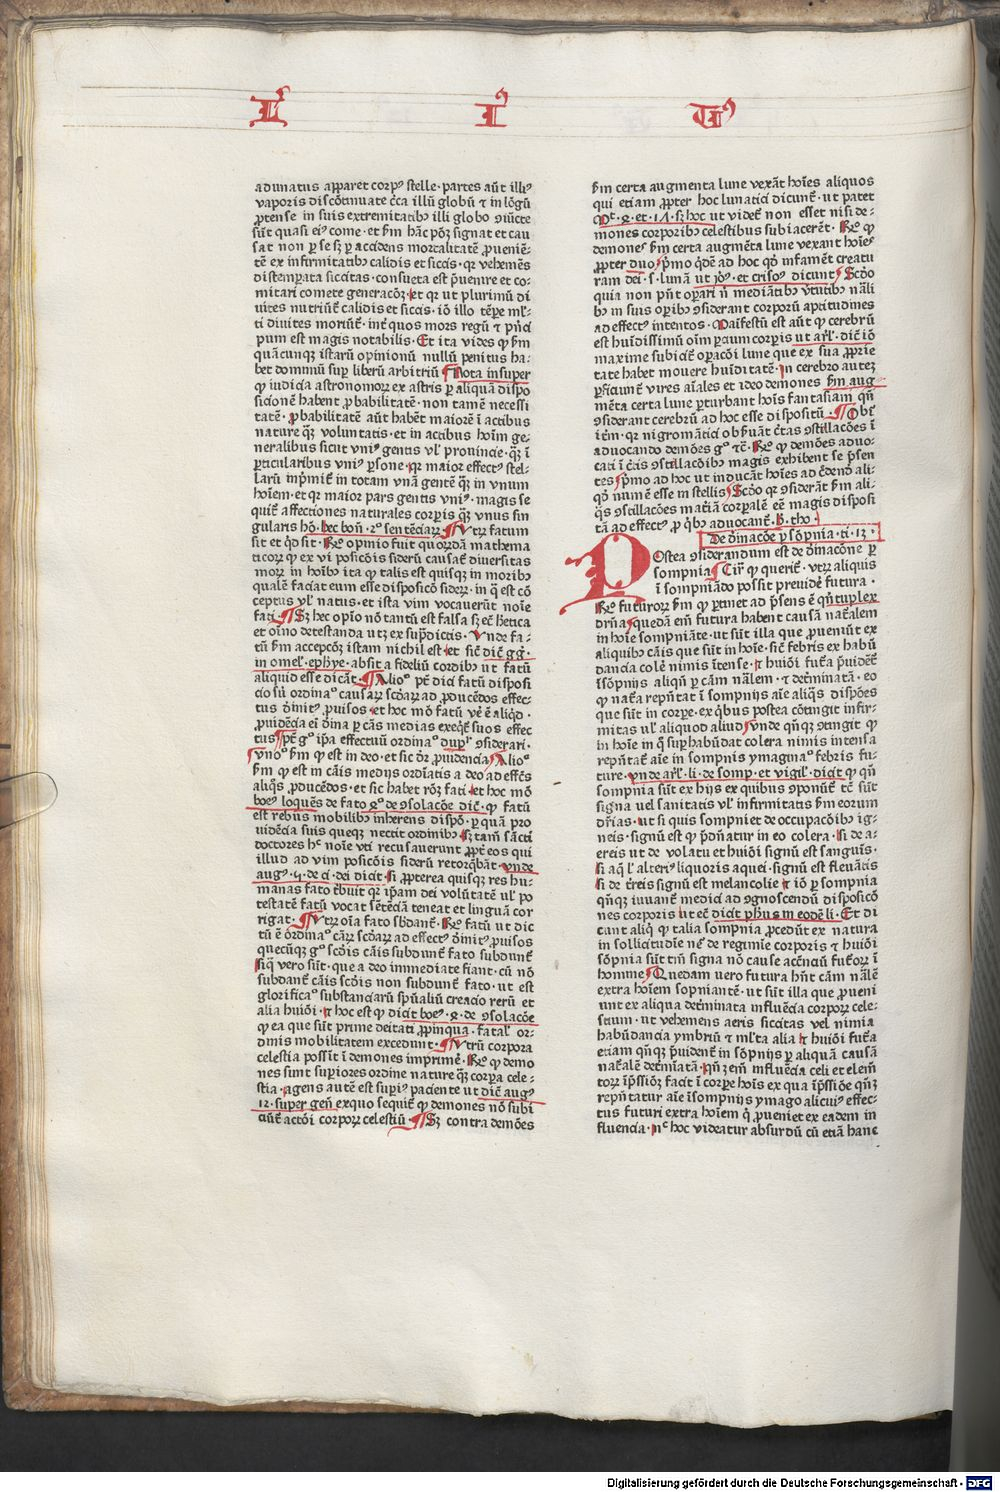 L I V
adunatus apparet corpꝰ stelle · partes aūt illiꝰ
vaporis discōtinuate c̄ca illū globū ⁊ in lōgū
ꝓtense in suis extremitatibꝫ illi globo ꝯiūcte
sūt quasi eiꝰ come · et ẜm hāc pōꝫ signat et cau
sat non ꝑ se sꝫ ꝑ accidens mortalitatē ꝓueniē-
tē ex infirmitatibꝫ calidis et siccis · qꝛ vehemēs
distemꝑata siccitas · consueta est p̄uenire et co-
mitari comete generacōꝫ · et qꝛ ut plurimū di
uites nutriūt̄ calidis et siccis · iō illo tēpe ml̓-
ti diuites moriūt̄ · int̄ quos mors regū ⁊ pⁿci
pum est magis notabilis · Et ita vides ꝙ ẜm
quācunqꝫ istarū opinionū nullū penitus ha-
bet dominiū suꝑ liberū arbitriū Nota insuper
ꝙ iudicia astronomoꝝ ex astris ꝑ aliquā dispo
sicionē habent ꝓbabilitatē · non tamē necessi
tatē · ꝓbabilitatē aūt habēt maiorē ī actibus
nature qꝫ̄ voluntatis · et in actibus hoīm ge-
neralibus sicut vniꝰ gentis vl̓ prouincie · qꝫ̄ ī
ꝑticularibus vniꝰ ꝑsone · qꝛ maior effectꝰ stel-
larū īpⁱmit̄ in totam vnā gentē qꝫ̄ in vnum
hoīem · et qꝛ maior pars gentis vniꝰ · magis se
quit̄ affectiones naturales corꝑis qꝫ̄ vnus sin
gularis hō · hec bon̄ · 2º sentēciaꝝ · Vtꝝ fatum
sit et qͥd sit · Rº opinio fuit quorūdā mathema
ticoꝝ ꝙ ex vi posicōis siderū causat̄ diuersitas
moꝝ in hoībꝫ ita ꝙ talis est quisqꝫ in moribꝫ
qualē faciat eum esse disposicō sideꝝ · in q̄ est cō
ceptus vl̓ natus · et ista vim vocauerūt noīe
fati · Sꝫ hec opīo nō tantū est falsa sꝫ ec̄ h̓etica
et oīno detestanda utꝫ ex supͣdictis · Vnde fa-
tū ẜm accepcōꝫ istam nichil est · et sic̄ dic̄ gg̓ ·
in omel̓ · ephye · absit a fideliū cordibꝫ ut fatū
aliquid esse dicāt · Alioº pt̄ dici fatū disposi
cio sū ordinaº causaꝝ sc̄daꝝ ad ꝓducēdos effec-
tus dⁱnitꝰ ꝓuisos · et hoc mō fatū vē ē aliqͥd ·
ꝓuidēcia ei dⁱna ꝑ cās medias exeqt̄ suos effec
tus · pt̄ gº ip̄a effectuū ordinaº dupl̓r ꝯsiderari ·
vnoº ẜm ꝙ est in deo · et sic dr̄ ꝓuidencia · Alioº
ẜm ꝙ est in cāis medijs ordīatis a deo ad effc̄s
aliqͦs ꝓducēdos · et sic habet rōꝫ fati · et hoc mō
boeꝰ loquēs de fato 4º de ꝯsolacōe dic̄ · ꝙ fatū
est rebus mobilibꝫ inherens dispō · ꝑ quā pro
uidēcia suis queqꝫ nectit ordinibꝫ · Sꝫ tam̄ sācti
doctores hͨ noīe vti recusauerunt ꝓpt̄ eos qui
illud ad vim posicōis siderū retorqͣbāt · vnde
augꝰ · 5 · de ci · dei dicit · si ꝓpterea quisqꝫ res hu-
manas fato tⁱbuit qꝛ ip̄am dei volūtatē vl̓ po
testatē fatū vocat sētēciā teneat et linguā cor
rigat · Vtꝝ oīa fato sb̄dant̄ · Rº fatū ut dic
tū ē ordinaº cāꝝ sc̄daꝝ ad effectꝰ dⁱnitꝰ ꝓuisos
quecūqꝫ gº sc̄dis cāis subdunt̄ fato subdunt̄
siq̄ vero sūt · que a deo immediate fiant · cū nō
subdant̄ cāis sc̄dis non subdunt̄ fato · ut est
glorificaº substanciarū spūaliū creacio rerū et
alia huiōi · et hoc est ꝙ dicit boeꝰ · 4 · de ꝯsolacōe
ꝙ ea que sūt prime deitati ꝓpinqua · fatal̓ or-
dinis mobilitatem excedunt · Vtrū corpora
celestia possīt ī demones imprimē · Rº ꝙ demo
nes sunt suꝑiores ordine nature qꝫ̄ corꝑa cele-
stia · agens autē est supⁱꝰ paciente ut dic̄ augꝰ
12 · super gen̄ · exquo sequit̄ ꝙ demones nō subi
ciūt̄ actōi corpoꝝ celestiū · Sꝫ contra demōes
ẜm certa augmenta lune vexāt hoīes aliquos
qui etiam ꝓpter hoc lunatici dicunt̄ · ut patet
Mt̄ · 4 · et · 17 · sꝫ hoc ut videt̄ non esset nisi de-
mones corporibꝫ celestibus subiacerēt · Rº ꝙ
demones ẜm certa augmēta lune vexant hoīes
ꝓpter duo · pⁱmo qͥdē ad hoc qͦ infament creatu
ram dei · s · lunā ut joꝰ · et crisoꝰ dicunt · Sc̄do
quia non pn̄t oꝑari ni mediātibꝫ v̓tutibꝫ nāli
bꝫ in suis oꝑibꝫ ꝯsiderant corporū aptitudines
ad effectꝰ intentos · Maīfestū est aūt ꝙ cerebrū
est huīdissimū oīm ꝑcium corꝑis ut ar̄l · dic̄ iō
maxime subicit̄ oꝑacōi lune que ex sua ꝓprie
tate habet mouere huīditatē · in cerebro auteꝫ
ꝑficiunt̄ vires aīales et ideo demones ẜm aug-
mēta certa lune ꝑturbant hoīs fantasiam qn̄
ꝯsiderant cerebrū ad hoc esse dispositū Obꝰ
it̄m · qꝛ nigromātici obẜuāt c̄tas ꝯstillacōes ī
aduocando demōes gº ⁊c̄ · Rº ꝙ demōes aduo-
cati ī c̄tis ꝯstillacōibꝫ magis exhibent se p̄sen
tes · pⁱmo ad hoc ut inducāt hoīes ad c̄dendū ali-
qͦ numē esse in stellis · Sc̄do qꝛ ꝯsiderāt ẜm ali-
qͣs ꝯstillacōes mat̓iā corꝑalē eē magis disposi
tā ad effectꝰ ꝓ qͥbꝫ aduocant̄ · h̓ · tho ·
De dⁱnacōe ꝑ sōpnia · ti · 13 ·
Postea ꝯsiderandum est de dⁱnacōne ꝑ
sompnia · Circͣ ꝙ querit̄ · vtꝝ aliquis
ī sompniādo possit preuidē futura ·
Rº futuroꝝ ẜm ꝙ ꝑtinet ad p̄sens ē qn̄tuplex
drn̄a · quedā em̄ futura habent causā natͣalem
in hoīe sompniāte · ut sūt illa que ꝓueniūt ex
aliquibꝫ cāis que sūt in hoīe · sic̄ febris ex habū
dancia colē nimis ītense · ⁊ huiōi futͣa p̄uidēt̄
ī sōpnijs aliqn̄ ꝑ cām nālem · ⁊ det̓minatā · eo
ꝙ natͣa rep̄ntat ī sompnijs aīe aliqͣs dispōes
que sūt in corꝑe · ex qͥbus postea cōtingit infir-
mitas vl̓ aliquod aliud · Vnde qn̄qꝫ ꝯtingit ꝙ
in hoīe in q̄ suꝑhabūdat colera nimis intensa
rep̄ntat̄ aīe in sompnis ymaginaº febris fu-
ture · vnde ar̄l · li · de somp · et vigil̓ · dicit ꝙ qn̄
sompnia sūt ex hijs ex quibus ꝯponunt̄ tc̄ sūt
signa vel sanitatis vl̓ infirmitatis ẜm eorum
dr̄ias · ut si quis sompniet de occupacōibꝫ ig-
neis · signū est ꝙ p̄dn̄atur in eo colera · Si de a-
ereis ut de volatu et huiōi signū est sanguīs ·
si aq̄ l̓ alteriꝰ liquoris aquei · signū est fleuātis
si de t̓reis signū est melancolie · et iō ꝑ sompnia
qn̄qꝫ iuuant̄ medici ad ꝯgnoscendū disposicō
nes corporis · ut ec̄ dicit pħus in eodē li · Et di
cant aliqͥ ꝙ talia sompnia ꝓcedūt ex natura
in sollicitudīe nr̄ de regimīe corporis ⁊ huiōi
sōpnia sūt tm̄ signa nō cause accn̄tiū futͦoꝝ ī
homine · Quedam vero futura hn̄t cām nālē
extra hoīem sopniantē · ut sūt illa que ꝓueni
unt ex aliqua det̓minata influēcia corpoꝝ cele-
stium · ut vehemens aeris siccitas vel nimia
habūdancia ymbriū ⁊ ml̓ta alia · et huiōi futͣa
etiam qn̄qꝫ p̄uident̄ in sōpnijs ꝑ aliquā causā
natͣalē det̓mīatā · qn̄qꝫ em̄ influēcia celi et elem̄
toꝝ īp̄ssiōꝫ facit ī corꝑe hoīs ex qua īp̄ssiōe qn̄qꝫ
rep̄ntatur aīe ī sompnijs ymago alicuiꝰ effec-
tus futuri extra hoīem qͥ ꝓueniet ex eadem in
fluencia · nͨ hoc videatur absurdū cū etiā hanc